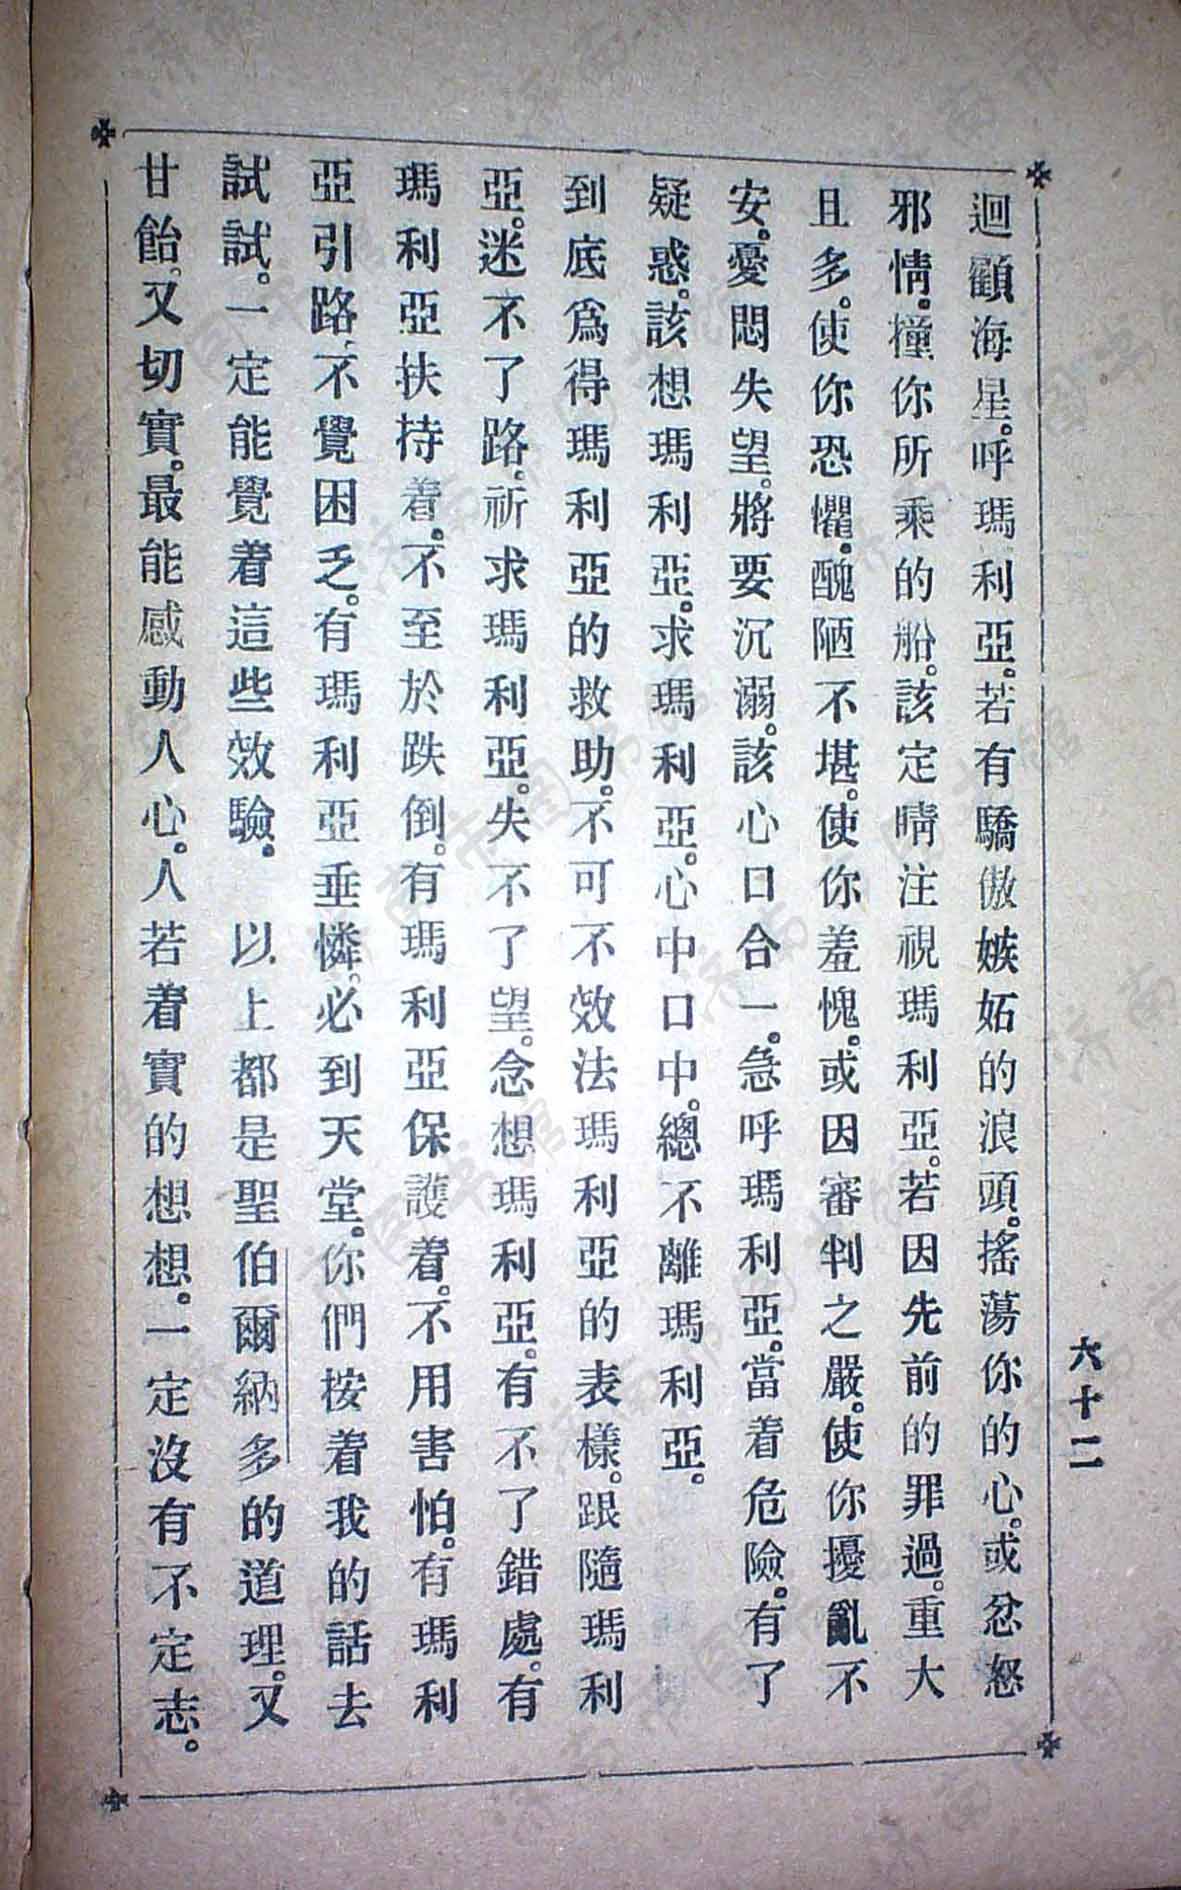 六十二
迴顧海星。呼瑪利亞。若有驕傲嫉妬的浪頭。搖蕩你的心。或忿怒
邪情。撞你所乘的船。該定睛注視瑪利亞。若因先前的罪過。重大
且多。使你恐懼。醜陋不堪。使你羞愧。或因審判之嚴。使你擾亂不
安。憂悶失望。將要沉溺。該心口合一。急呼瑪利亞。當着危險。有了
疑惑。該想瑪利亞。求瑪利亞。心中口中。總不離瑪利亞。
到底爲得瑪利亞的救助。不可不效法瑪利亞的表樣。跟隨瑪利
亞。迷不了路。祈求瑪利亞。失不了望。念想瑪利亞。有不了錯處。有
瑪利亞扶持着。不至於跌倒。有瑪利亞保護着。不用害怕。有瑪利
亞引路。不覺困乏。有瑪利亞垂憐。必到天堂。你們按着我的話去
試試。一定能覺着這些效驗。 以上都是聖伯爾納多的道理。又
甘飴。又切實。最能感動人心。人若着實的想想。一定沒有不定志。
濟南市图书馆